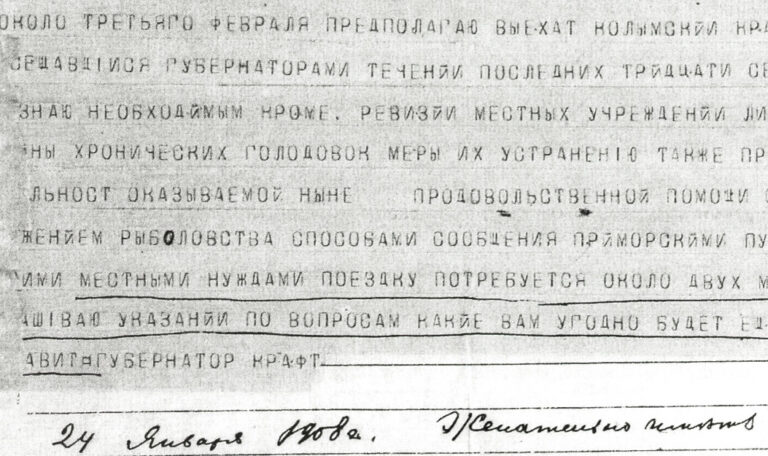 ОКОЛО ТРЕТЬЯГО ФЕВРАЛЯ ПРЕДПОЛАГАЮ ВЫЕХАТ КОЛЫМСКЙЙ КРА
СЕЩАВШІЙСЯ ГУБЕРНАТОРАМИ ТЕЧЕНЙИ ПОСЛЕДНИХ ТРЙДЦАТИ СЕ
ЗНАЮ НЕОБХОДЙМЫМ КРОМЕ. РЕВИЗЙИ МЕСТНЫХ УЧРЕЖДЕНЙИ ЛИ
НЫ ХРОНИЧЕСКИХ ГОЛОДОВОК МЕРЫ ИХ УСТРАНЕНІЮ ТАКЖЕ ПР
ЛЬНОСТ ОКАЗЫВАЕМОЙ НЫНЕ ПРОДОВОЛЬСТВЕННОЙ ПОМОЩИ
ЖЕНЙЕМ РЫБОЛОВСТВА СПОСОБАМИ СООБЩЕНИЯ ПРЙМОРСКЙМИ ПУ
ИМИ МЕСТНЫМИ НУЖДАМИ ПОЕЗДКУ ПОТРЕБУЕТСЯ ОКОЛО ДВУХ М
АШІВАЮ УКАЗАНЙИ ПО ВОПРОСАМ КАКЙЕ ВАМ УГОДНО БУДЕТ ЕД
АВИТ=ГУБЕРНАТОР КРАФТ
24 Января 1908 г. Желательно